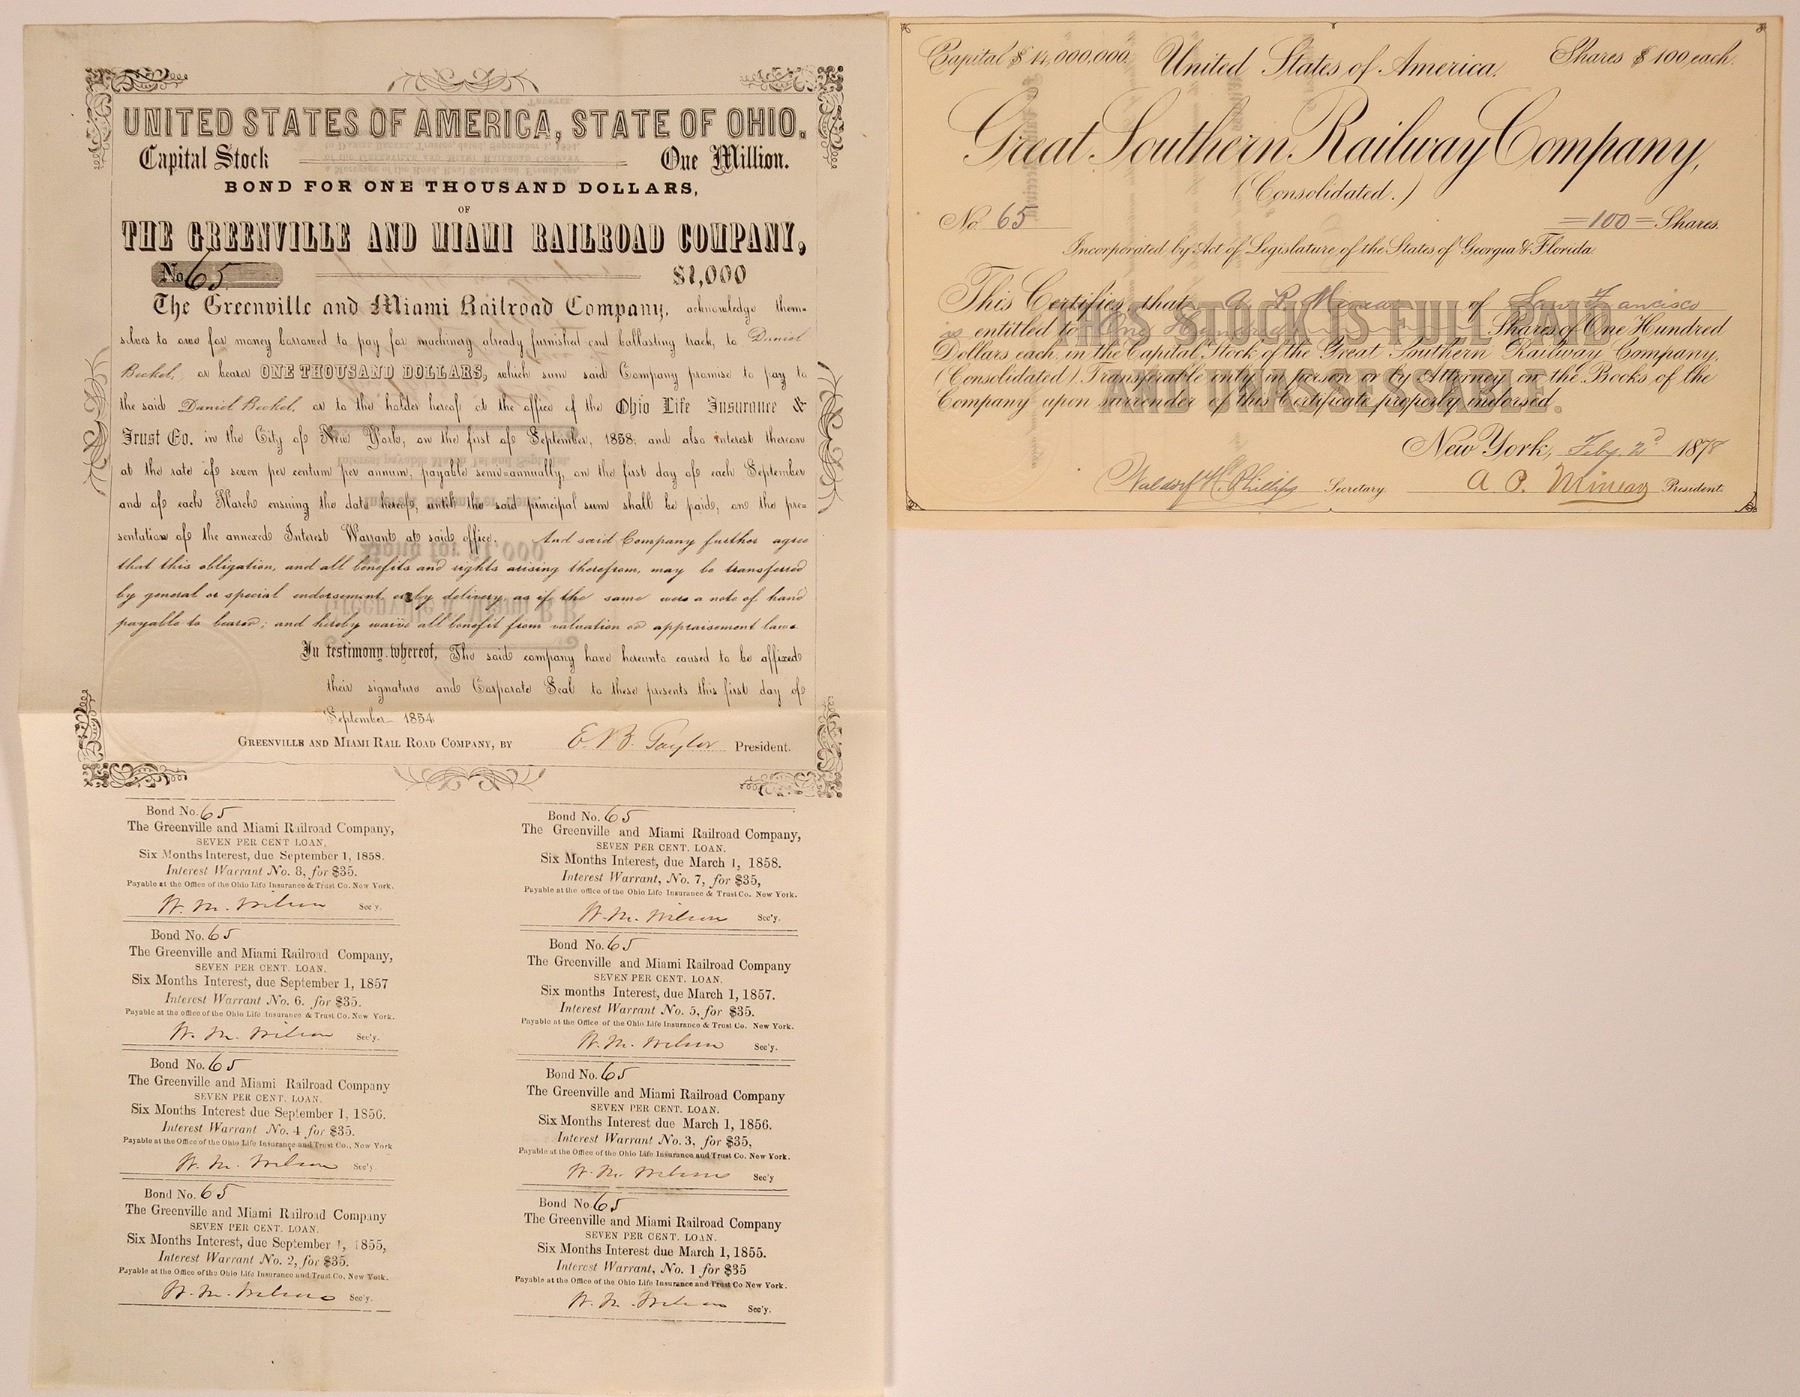 UNITED STATES OF AMERICA, STATE OF OHIO.
Capital Stock One Million.
BOND FOR ONE THOUSAND DOLLARS,
OF
THE GREENVILLE AND MIAMI RAILROAD COMPANY,
No. 65 $1,000
The Greenville and Miami Railroad Company, acknowledge them-
selves to owe for money borrowed to pay for machinery already furnished and ballasting track, to Daniel
Beckel, or bearer ONE THOUSAND DOLLARS, which sum said Company promise to pay to
the said Daniel Beckel, or to the holder hereof at the office of the Ohio Life Insurance &
Trust Co. in the City of New York, on the first of September, 1858; and also interest thereon
at the rate of seven per centum per annum, payable semi-annually, on the first day of each September
and of each March ensuing the date hereof, until the said principal sum shall be paid, on the pre-
sentation of the annexed Interest Warrant at said office. And said Company further agree
that this obligation, and all benefits and rights arising therefrom, may be transferred
by general or special endorsement or by delivery as if the same were a note of hand
payable to bearer; and hereby waive all benefit from valuation or appraisement laws
In testimony whereof, The said company have hereunto caused to be affixed
their signature and Corporate Seal to these presents this first day of
September 1854
GREENVILLE AND MIAMI RAIL ROAD COMPANY, BY E. B. Taylor President.
Bond No. 65
The Greenville and Miami Railroad Company,
SEVEN PER CENT LOAN,
Six Months Interest, due September 1, 1858.
Interest Warrant No. 8, for $35.
Payable at the Office of the Ohio Life Insurance & Trust Co. New York.
W. M. Wilson Sec'y.
Bond No. 65
The Greenville and Miami Railroad Company,
SEVEN PER CENT. LOAN.
Six Months Interest, due March 1, 1858.
Interest Warrant, No. 7, for $35,
Payable at the office of the Ohio Life Insurance & Trust Co. New York.
W. M. Wilson Sec'y.
Bond No. 65
The Greenville and Miami Railroad Company,
SEVEN PER CENT. LOAN.
Six Months Interest, due September 1, 1857
Interest Warrant No. 6. for $35.
Payable at the Office of the Ohio Life Insurance & Trust Co. New York.
W. M. Wilson Sec'y.
Bond No. 65
The Greenville and Miami Railroad Company
SEVEN PER CENT. LOAN.
Six months Interest, due March 1, 1857.
Interest Warrant No. 5, for $35.
Payable at the Office of the Ohio Life Insurance & Trust Co. New York.
W. M. Wilson Sec'y.
Bond No. 65
The Greenville and Miami Railroad Company
SEVEN PER CENT. LOAN.
Six Months Interest due September 1, 1856.
Interest Warrant No. 4 for $35.
Payable at the Office of the Ohio Life Insurance and Trust Co., New York
W. M. Wilson Sec'y.
Bond No. 65
The Greenville and Miami Railroad Company
SEVEN PER CENT. LOAN.
Six Months Interest due March 1, 1856.
Interest Warrant No. 3, for $35,
Payable at the Office of the Ohio Life Insurance and Trust Co. New York.
W. M. Wilson Sec'y
Bond No. 65
The Greenville and Miami Railroad Company
SEVEN PER CENT. LOAN.
Six Months Interest, due September 1, 1855,
Interest Warrant No. 2, for $35.
Payable at the Office of the Ohio Life Insurance and Trust Co. New York.
W. M. Wilson Sec'y.
Bond No. 65
The Greenville and Miami Railroad Company
SEVEN PER CENT. LOAN.
Six Months Interest due March 1, 1855.
Interest Warrant, No. 1 for $35
Payable at the Office of the Ohio Life Insurance and Trust Co New York.
W. M. Wilson Sec'y.
Capital $14,000,000. United States of America. Shares $100 each.
Great Southern Railway Company,
(Consolidated.)
No. 65 =100= Shares.
Incorporated by Act of Legislature of the States of Georgia & Florida
This Certifies that A. P. Minear of San Francisco
is entitled to One Hundred Shares of One Hundred
Dollars each in the Capital Stock of the Great Southern Railway Company,
(Consolidated) Transferable only in person or by Attorney on the Books of the
Company upon surrender of this Certificate properly indorsed.
THIS STOCK IS FULL PAID
AND UNASSESSABLE.
New York, Feby 2d 1878
Waldorf H. Phillips Secretary A. P. Minear President.